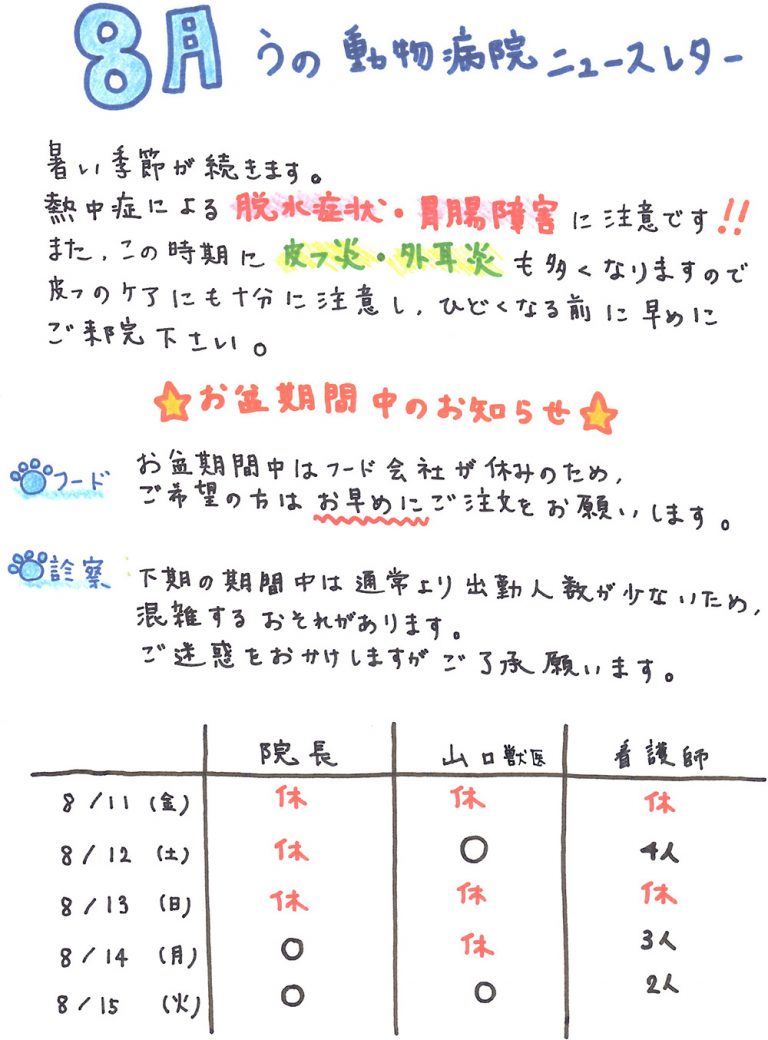 8月 うの動物病院ニュースレター
暑い季節が続きます。
熱中症による 脱水症状・胃腸障害 に注意です!!
また、この時期に 皮フ炎・外耳炎 も多くなりますので
皮フのケアにも十分に注意し、ひどくなる前に早めに
ご来院下さい。
お盆期間中のお知らせ
フード お盆期間中はフード会社が休みのため、
ご希望の方は お早めにご注文をお願いします。
診察 下期の期間中は通常より出勤人数が少ないため、
混雑するおそれがあります。
ご迷惑をおかけしますがご了承願います。
院長 山口獣医 看護師
8/11 (金) 休 休 休
8/12 (土) 休 ○ 4人
8/13 (日) 休 休 休
8/14 (月) ○ 休 3人
8/15 (火) ○ ○ 2人